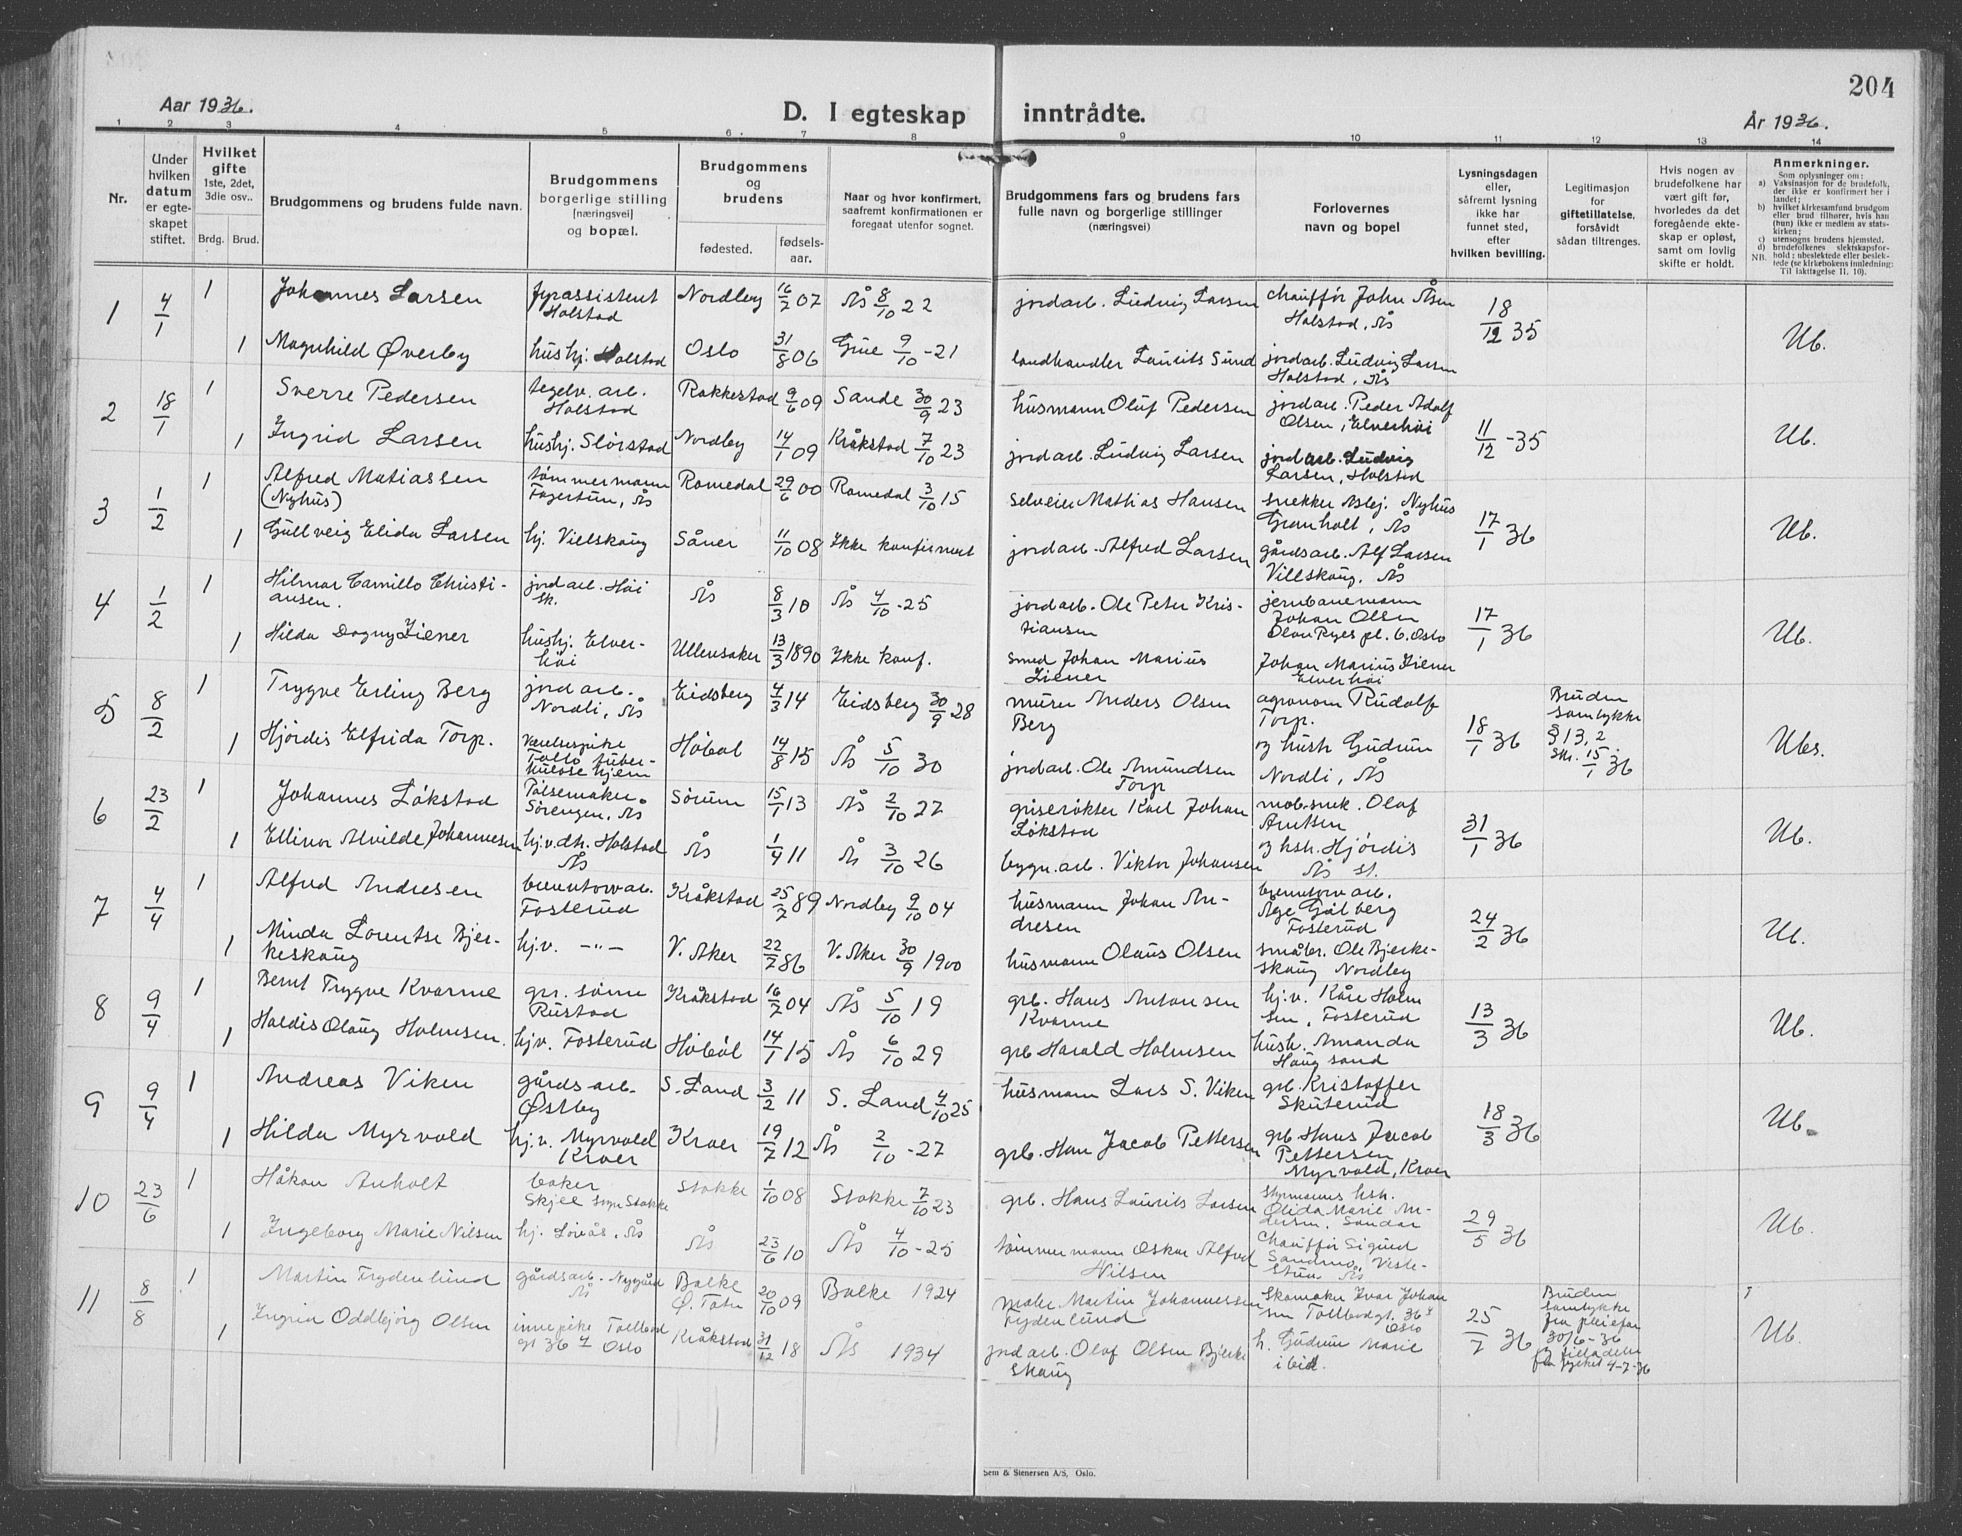 204
Aar 1936.
D. I egteskap inntrådte.
År 1936.
1 2 3 4 5 6 7 8 9 10 11 12 13 14
Nr.
Under hvilken datum er egteskapet stiftet.
Hvilket gifte 1ste, 2det, 3die osv..
Brdg. Brud.
Brudgommens og brudens fulde navn.
Brudgommens borgerlige stilling (næringsvei) og bopæl.
Brudgommens og brudens
fødested.
fødselsaar.
Naar og hvor konfirmert, saafremt konfirmationen er foregaat utenfor sognet.
Brudgommens fars og brudens fars fulle navn og borgerlige stillinger (næringsvei)
Forlovernes navn og bopel
Lysningsdagen eller, såfremt lysning ikke har funnet sted, efter hvilken bevilling.
Legitimasjon for giftetillatelse, forsåvidt sådan tiltrenges.
Hvis nogen av brudefolkene har vært gift før, hvorledes da det foregående ekteskap er opløst, samt om lovlig skifte er holdt.
Anmerkninger.
Som oplysninger om:
a) Vaksinasjon for de brudefolk, der ikke er konfirmert her i landet;
b) hvilket kirkesamfund brudgom eller brud tilhører, hvis han (hun) ikke er medlem av statskirken;
c) utensogns brudens hjemsted.
d) brudefolkenes slektskapsforhold: ubeslektede eller beslektede (se kirkebokens innledning:
NB. Til iakttagelse II. 10).
1 4/1 1 Johannes Larsen fyrassistent Holstad Nordby 16/7 07 Ås 8/10 22 jordarb. Ludvig Larsen chauffør John Åsen Holstad, Ås 18/12 35 Ub.
1 Magnhild Øverby hushj. Holstad Oslo 31/8 06 Grue 9/10-21 landhandler Laurits Sund jordarb. Ludvig Larsen Holstad, Ås
2 18/1 1 Sverre Pedersen teglv. arb. Holstad Rakkestad 9/6 09 Sande 30/9 23 husmann Oluf Pedersen jordarb. Peder Adolf Olsen, Elverhøi 11/12-35 Ub.
1 Ingrid Larsen hushj. Slørstad Nordby 14/1 09 Kråkstad 7/10 23 jordarb. Ludvig Larsen jordarb. Ludvig Larsen, Holstad
3 1/2 1 Alfred Matiassen (Nyhus) tømmermann Fagertun, Ås Romedal 29/6 00 Romedal 3/10 15 selveier Mathias Hansen snekker Aslej. Nyhus Granholt, Ås 17/1 36 Ub.
1 Gullveig Elida Larsen hj. Villskaug Såner 11/10 08 Ikke konfirmert jordarb. Alfred Larsen gårdsarb. Alf Larsen Villskaug, Ås
4 1/2 1 Hilmar Camillo Christiansen. jordarb. Høi sk. Ås 8/3 10 Ås 4/10-25 jordarb. Ole Peter Kristiansen jernbanemann Johan Olsen Olav Ryes pl. 6. Oslo 17/1 36 Ub.
1 Hilda Dagny Ziener hushj. Elverhöi Ullensaker 13/3 1890 Ikke konf. smed Johan Marius Ziener Johan Marius Ziener Elverhøi
5 8/2 1 Trygve Erling Berg jordarb. Nordli, Ås Eidsberg 4/3 14 Eidsberg 30/9 28 murer Anders Olsen Berg agronom Rudolf Torp. 18/1 36 Bruden samtykke § 13, 2 Skr. 15/1 36 Ubs.
1 Hjördis Elfrida Torp. Værelsespike Follo tuberkuløse hjem Høbøl 14/8 15 Ås 5/10 30 jordarb. Ole Amundsen Torp og hustr Gudrun Nordli, Ås
6 23/2 1 Johannes Løkstad Pølsemaker. Sørengen, Ås Sørum 15/1 13 Ås 2/10 27 griserøkter Karl Johan Løkstad møb.snek. Olaf Arntsen 31/1 36 Ub.
1 Ellinor Alvilde Johannesen hj.v.dh. Holstad Ås Ås 1/4 11 Ås 3/10 26 bygn. arb. Viktor Johansen og hsh. Hjördis Ås st.
7 4/4 1 Alfred Andresen brenntorvarb. Fosterud Kråkstad 25/7 89 Nordby 9/10 04 husmann Johan Andresen brenntorv arb. Åge Gålberg Fosterud 24/2 36 Ub.
1 Minda Lorentse Bjerkeskaug hj.v. -"- V. Aker 22/7 86 V. Aker 30/9 1900 husmann Olaus Olsen småbr. Ole Bjerkeskaug Nordby
8 9/4 1 Bernt Trygve Kvarme gr. sønn Rustad Kråkstad 16/7 04 Ås 5/10 19 grb. Hans Antonsen Kvarme hj.v. Kåre Holmsen, Fosterud 13/3 36 Ub.
1 Haldis Olaug Holmsen. hjv. Fosterud Høbøl 14/1 15 Ås 6/10 29 grb Harald Holmsen hush. Amanda Haugsand
9 9/4 1 Andreas Viken gårds-arb. Østby S. Land 3/2 11 S. Land 4/10 25 husmann Lars S. Viken grb. Kristoffer Skuterud 18/3 36 Ub.
1 Hilda Myrvold hj.v. Myrvold Kroer Kroer 19/7 12 Ås 2/10-27 grb. Hans Jacob Pettersen grb Hans Jacob Pettersen Myrvold, Kroer
10 23/6 1 Håkon Anholt baker Skjel Sogn Stokke Stokke 1/10 08 Stokke 7/10 23 grb. Hans Laurits Larsen styrmannes hsh. Olida Marie Andersen, Sandar 29/5 36 Ub.
1 Ingeborg Marie Nilsen hj. Löiås, Ås Ås 23/6 10 Ås 4/10-25 tömmermann Oskar Alfred Nilsen Chauffør Sigurd Sandmo, Vestestun Ås
11 8/8 1 Martin Frydenlund gårdsarb. Nygård Ås Balke Ø. Toten 20/10 09 Balke 1924 maler Martin Johannessen Frydenlund Skomaker Ivar Johansen Tollbodgt. 36 Oslo 25/7 36 Bruden samtykke fra pleiefar 30/6-36 og tilladelse fra fylket 4-7-36 Ub.
1 Ingrid Oddbjörg Olsen innepike Tollbod gt 36 Oslo Kråkstad 31/12 18 Ås 1934 jordarb. Olaf Olsen Bjerkeskaug h. Gudrun Marie ibid.
Sem & Stenersen A/S, Oslo.